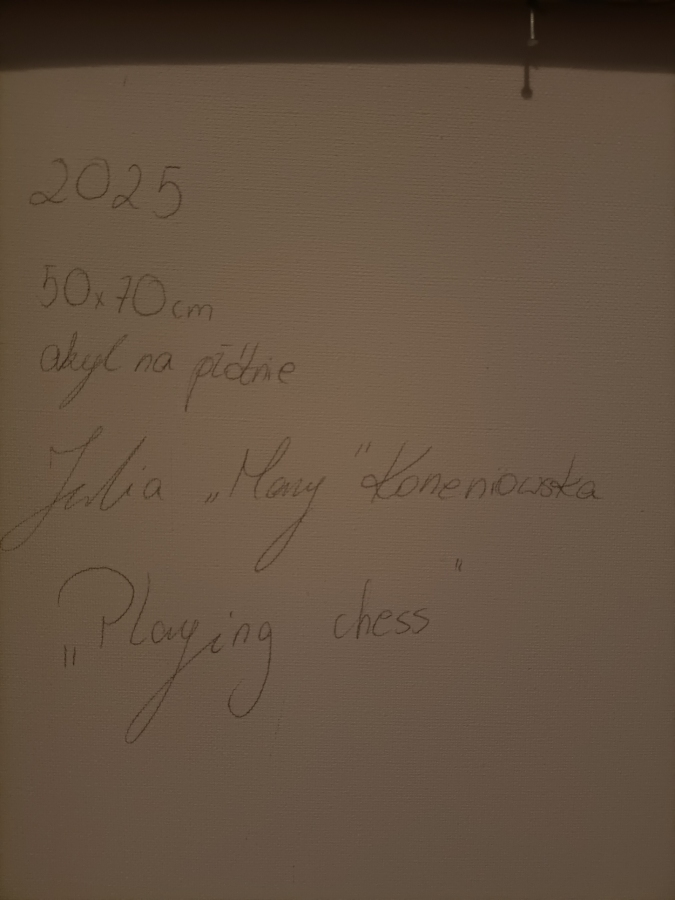 2025
50x70cm
akyl na płótnie
Julia „Mary" Koneniowska
„Playing chess"